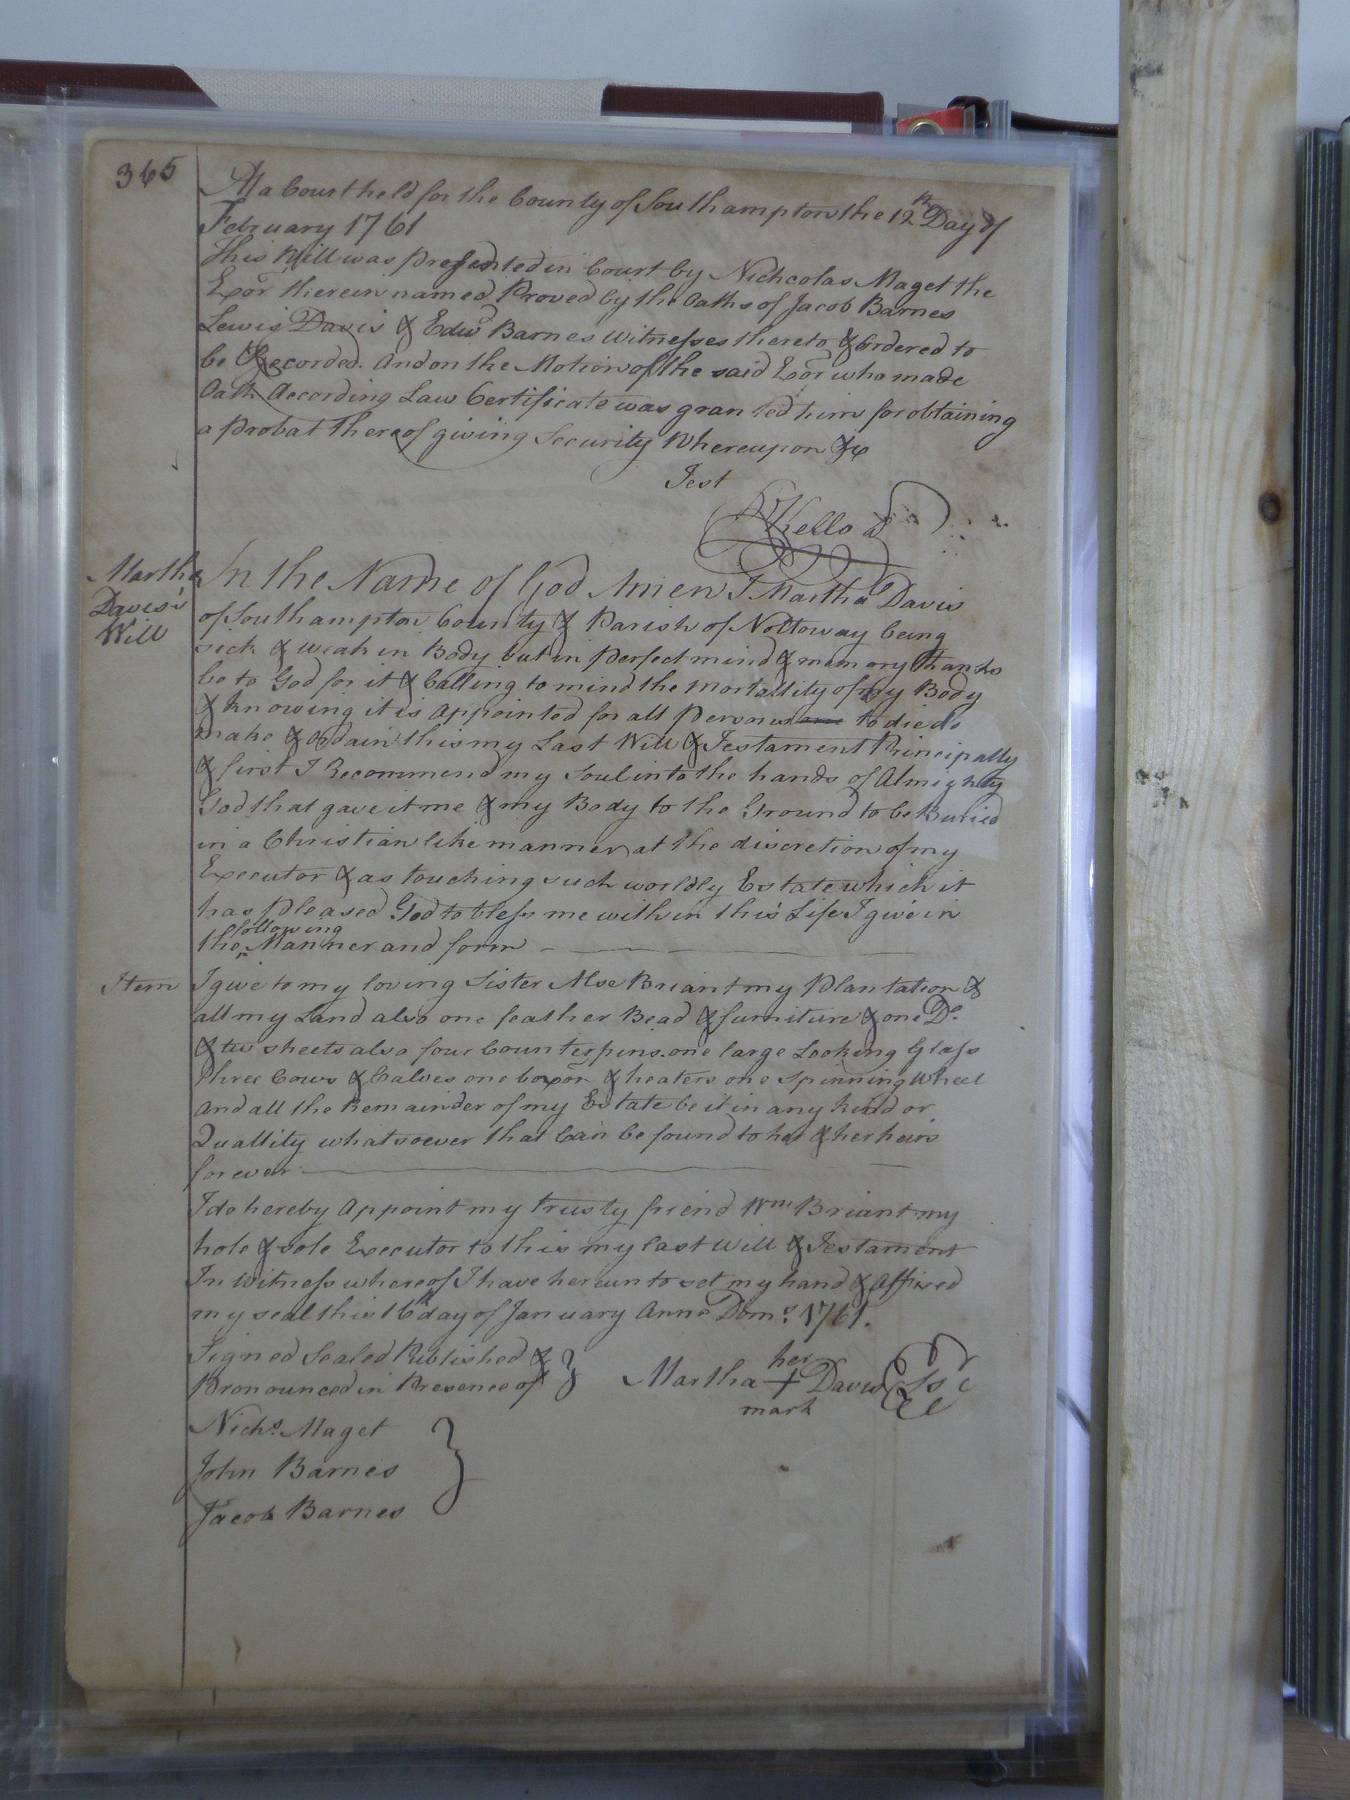 365
At a Court held for the County of Southampton the 12th Day of
February 1761
This Will was presented in Court by Nichcolas Maget the
Exor. therein named Proved by the Oaths of Jacob Barnes
Lewis Davis & Edwd Barnes Witnesses thereto & Ordered to
be Recorded. And on the Motion of the said Exor who made
Oath According Law Certificate was granted him for obtaining
a Probat thereof giving Security Whereupon &c
Test
Kello
Martha
Davis's
Will
In the Name of God Amen I Martha Davis
of Southampton County & Parish of Nottoway being
sick & weak in Body but in Perfect mind & memory thanks
be to God for it & Calling to mind the Mortallity of my Body
& knowing it is Appointed for all Persons to die do
make & ordain this my Last Will & Testament Principally
& first I Recommend my Soul into the hands of Almighty
God that gave it me & my Body to the Ground to be Buried
in a Christian like manner at the discretion of my
Executor & as touching such worldly Estate which it
has Pleased God to bless me with in this Life I give in
the following Manner and form
Item I give to my loving Sister Alse Briant my Plantation &
all my Land also one feather Bead & furniture & one Do.
& two sheets also four Counterpins. one large Looking Glass
three Cows & Calves one & heaters one Spinning Wheel
And all the Remainder of my Estate be it in any kind or
Quallity whatsoever that Can be found to her & her heirs
forever
I do hereby Appoint my trusty friend Wm Briant my
hole & sole Executor to this my last Will & Testament
In Witness whereof I have hereunto set my hand & Affixed
my seal this 16th day of January Anno Dom: 1761.
Signed Sealed Published &
Pronounced in Presence of
her
Martha + Davis Ls
mark
Nichs. Maget
John Barnes
Jacob Barnes